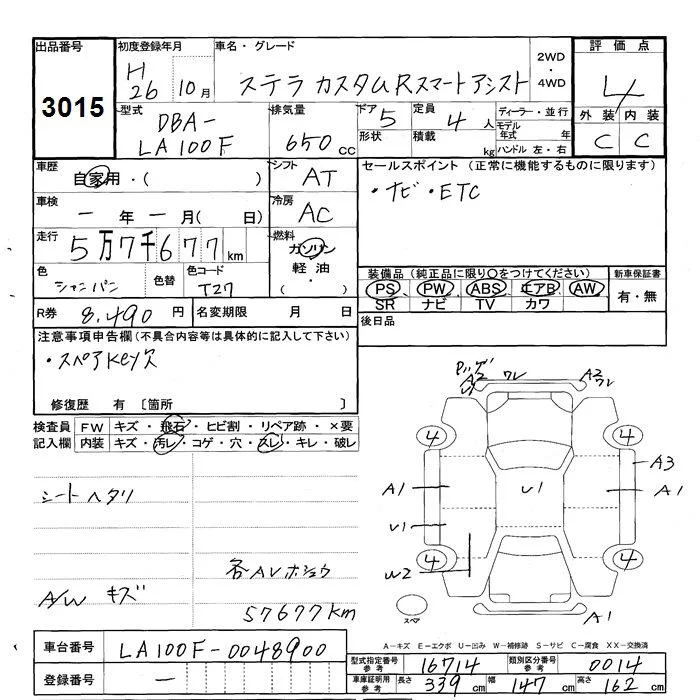 出品番号 3015
初度登録年月 H 26 10月
車名・グレード ステラ カスタムRスマートアシスト
2WD ・ 4WD
評価点 4
外装 内装 C C
型式 DBA- LA100F
排気量 650 cc
ドア 5 形状
定員 4 人 積載 kg
ディーラー・並行
モデル年式 年
ハンドル 左・右
車歴 自家用・( )
シフト AT
セールスポイント(正常に機能するものに限ります)
・ナビ・ETC
車検 ー 年 ー 月( 日)
冷房 AC
走行 5万7千677 km
燃料 ガソリン 軽油 ・( )
色 シャンパン 色替 色コード T27
装備品(純正品に限り○をつけてください)
PS PW ABS エアB AW
SR ナビ TV カワ
新車保証書 有・無
R券 8,490 円 名変期限 月 日
後日品
注意事項申告欄(不具合内容等は具体的に記入して下さい)
・スペアKey欠
修復歴 有 [箇所 ]
検査員記入欄 FW キズ・飛石・ヒビ割・リペア跡・×要
内装 キズ・汚レ・コゲ・穴・スレ・キレ・破レ
シートヘタリ
A/W キズ
各AVホショウ
57677km
A2 ワレ A2 ワレ
4 4
A3
A1 U1 A1
U1
W2
4 4
スペア
A1
A-キズ E-エクボ U-凹み W-補修跡 S-サビ C-腐食 XX-交換済
車台番号 LA100F-0048900
登録番号 ー
型式指定番号 参考 16714 類別区分番号 参考 0014
車庫証明用 参考 長さ 339 cm 幅 147 cm 高さ 162 cm